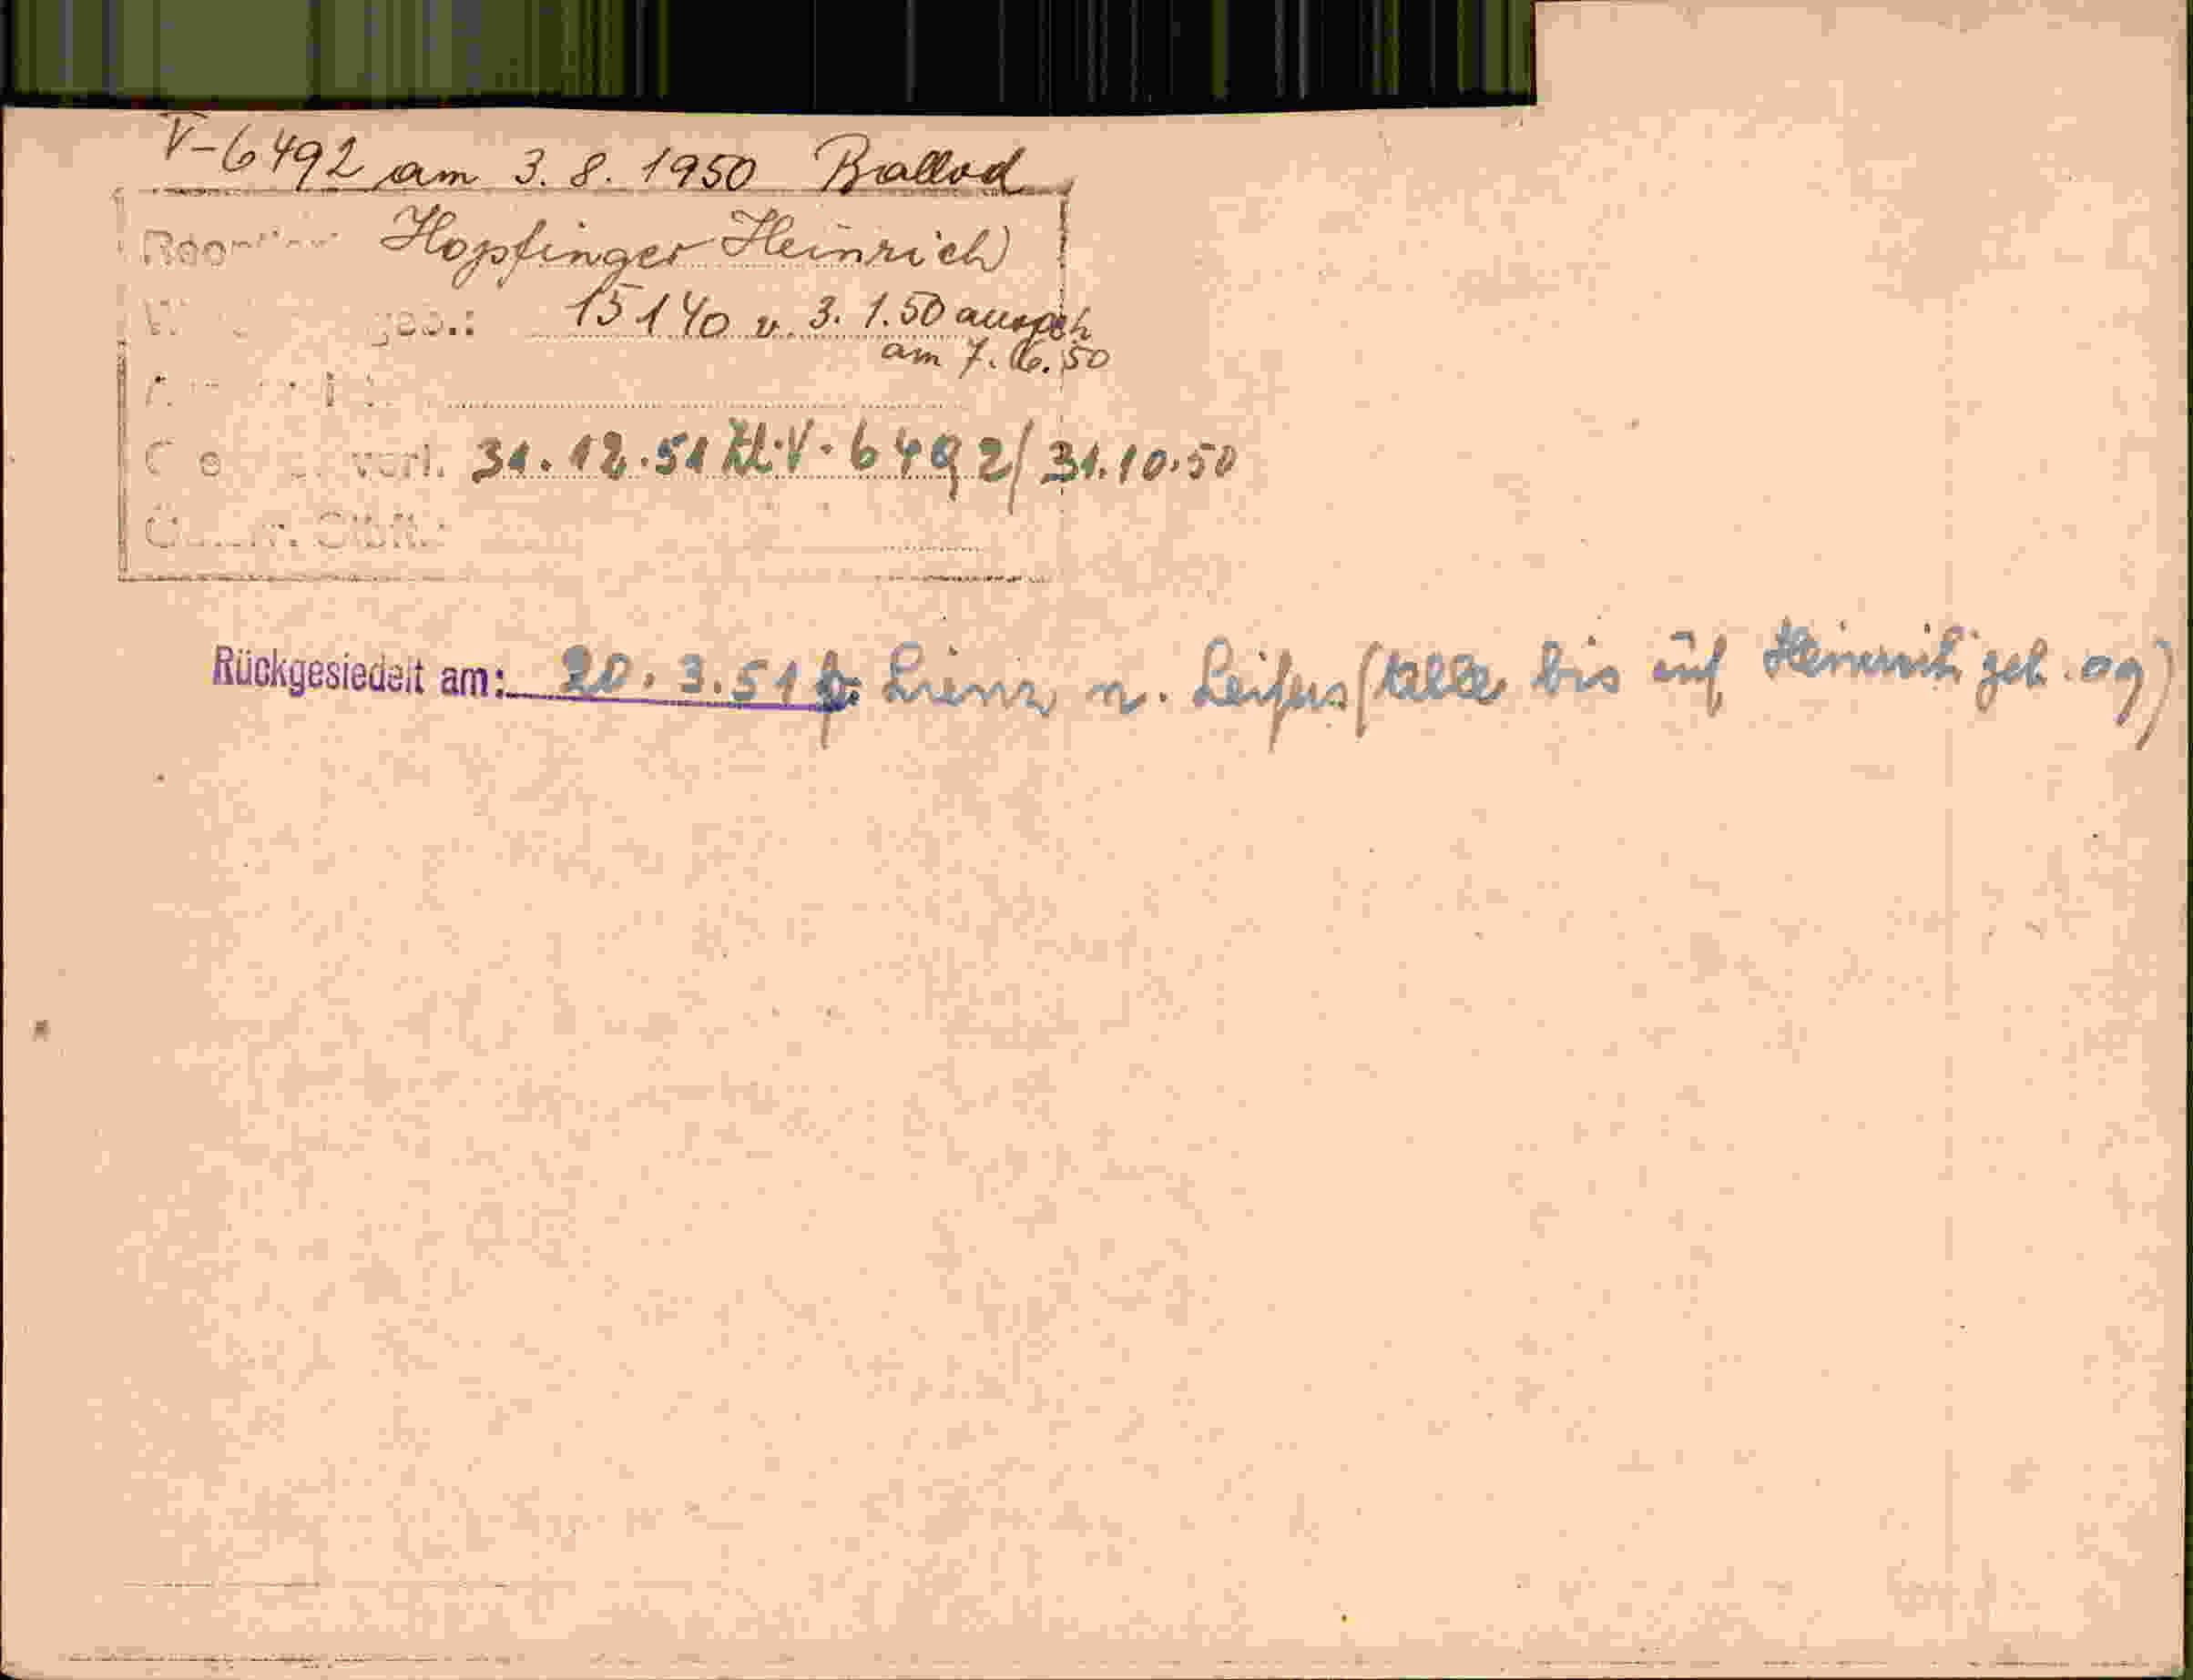 V-6492 am 3. 8. 1950 Ballod
Hopfinger Heinrich
geb.: 15140 v. 3. 1. 50 ausgeh
am 7. 6. 50
verl. 31. 12. 51 Zl. V. 6492/31.10.50
Rückgesiedelt am: 20. 3. 51 Lienz n. Leifers (alle bis auf Heinrich geb. 09)